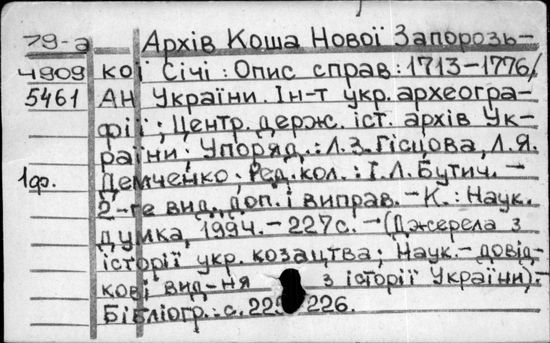 79-а Архів Коша Нової Запорозь-
4909 кої Січі : Опис справ : 1713-1776/
5461 АН України. Ін-т укр. археогра-
фії ; Центр. держ. іст. архів Ук-
раїни ; Упоряд. : Л.З. Гісцова, Л.Я.
1ф. Демченко ; Ред. кол. : І.Л. Бутич. -
2-ге вид. доп. і виправ. - К. : Наук.
думка, 1994. - 227с. - (Джерела з
історії укр. козацтва ; Наук. - довід-
кові вид-ня з історії України). -
Бібліогр. : с. 226.